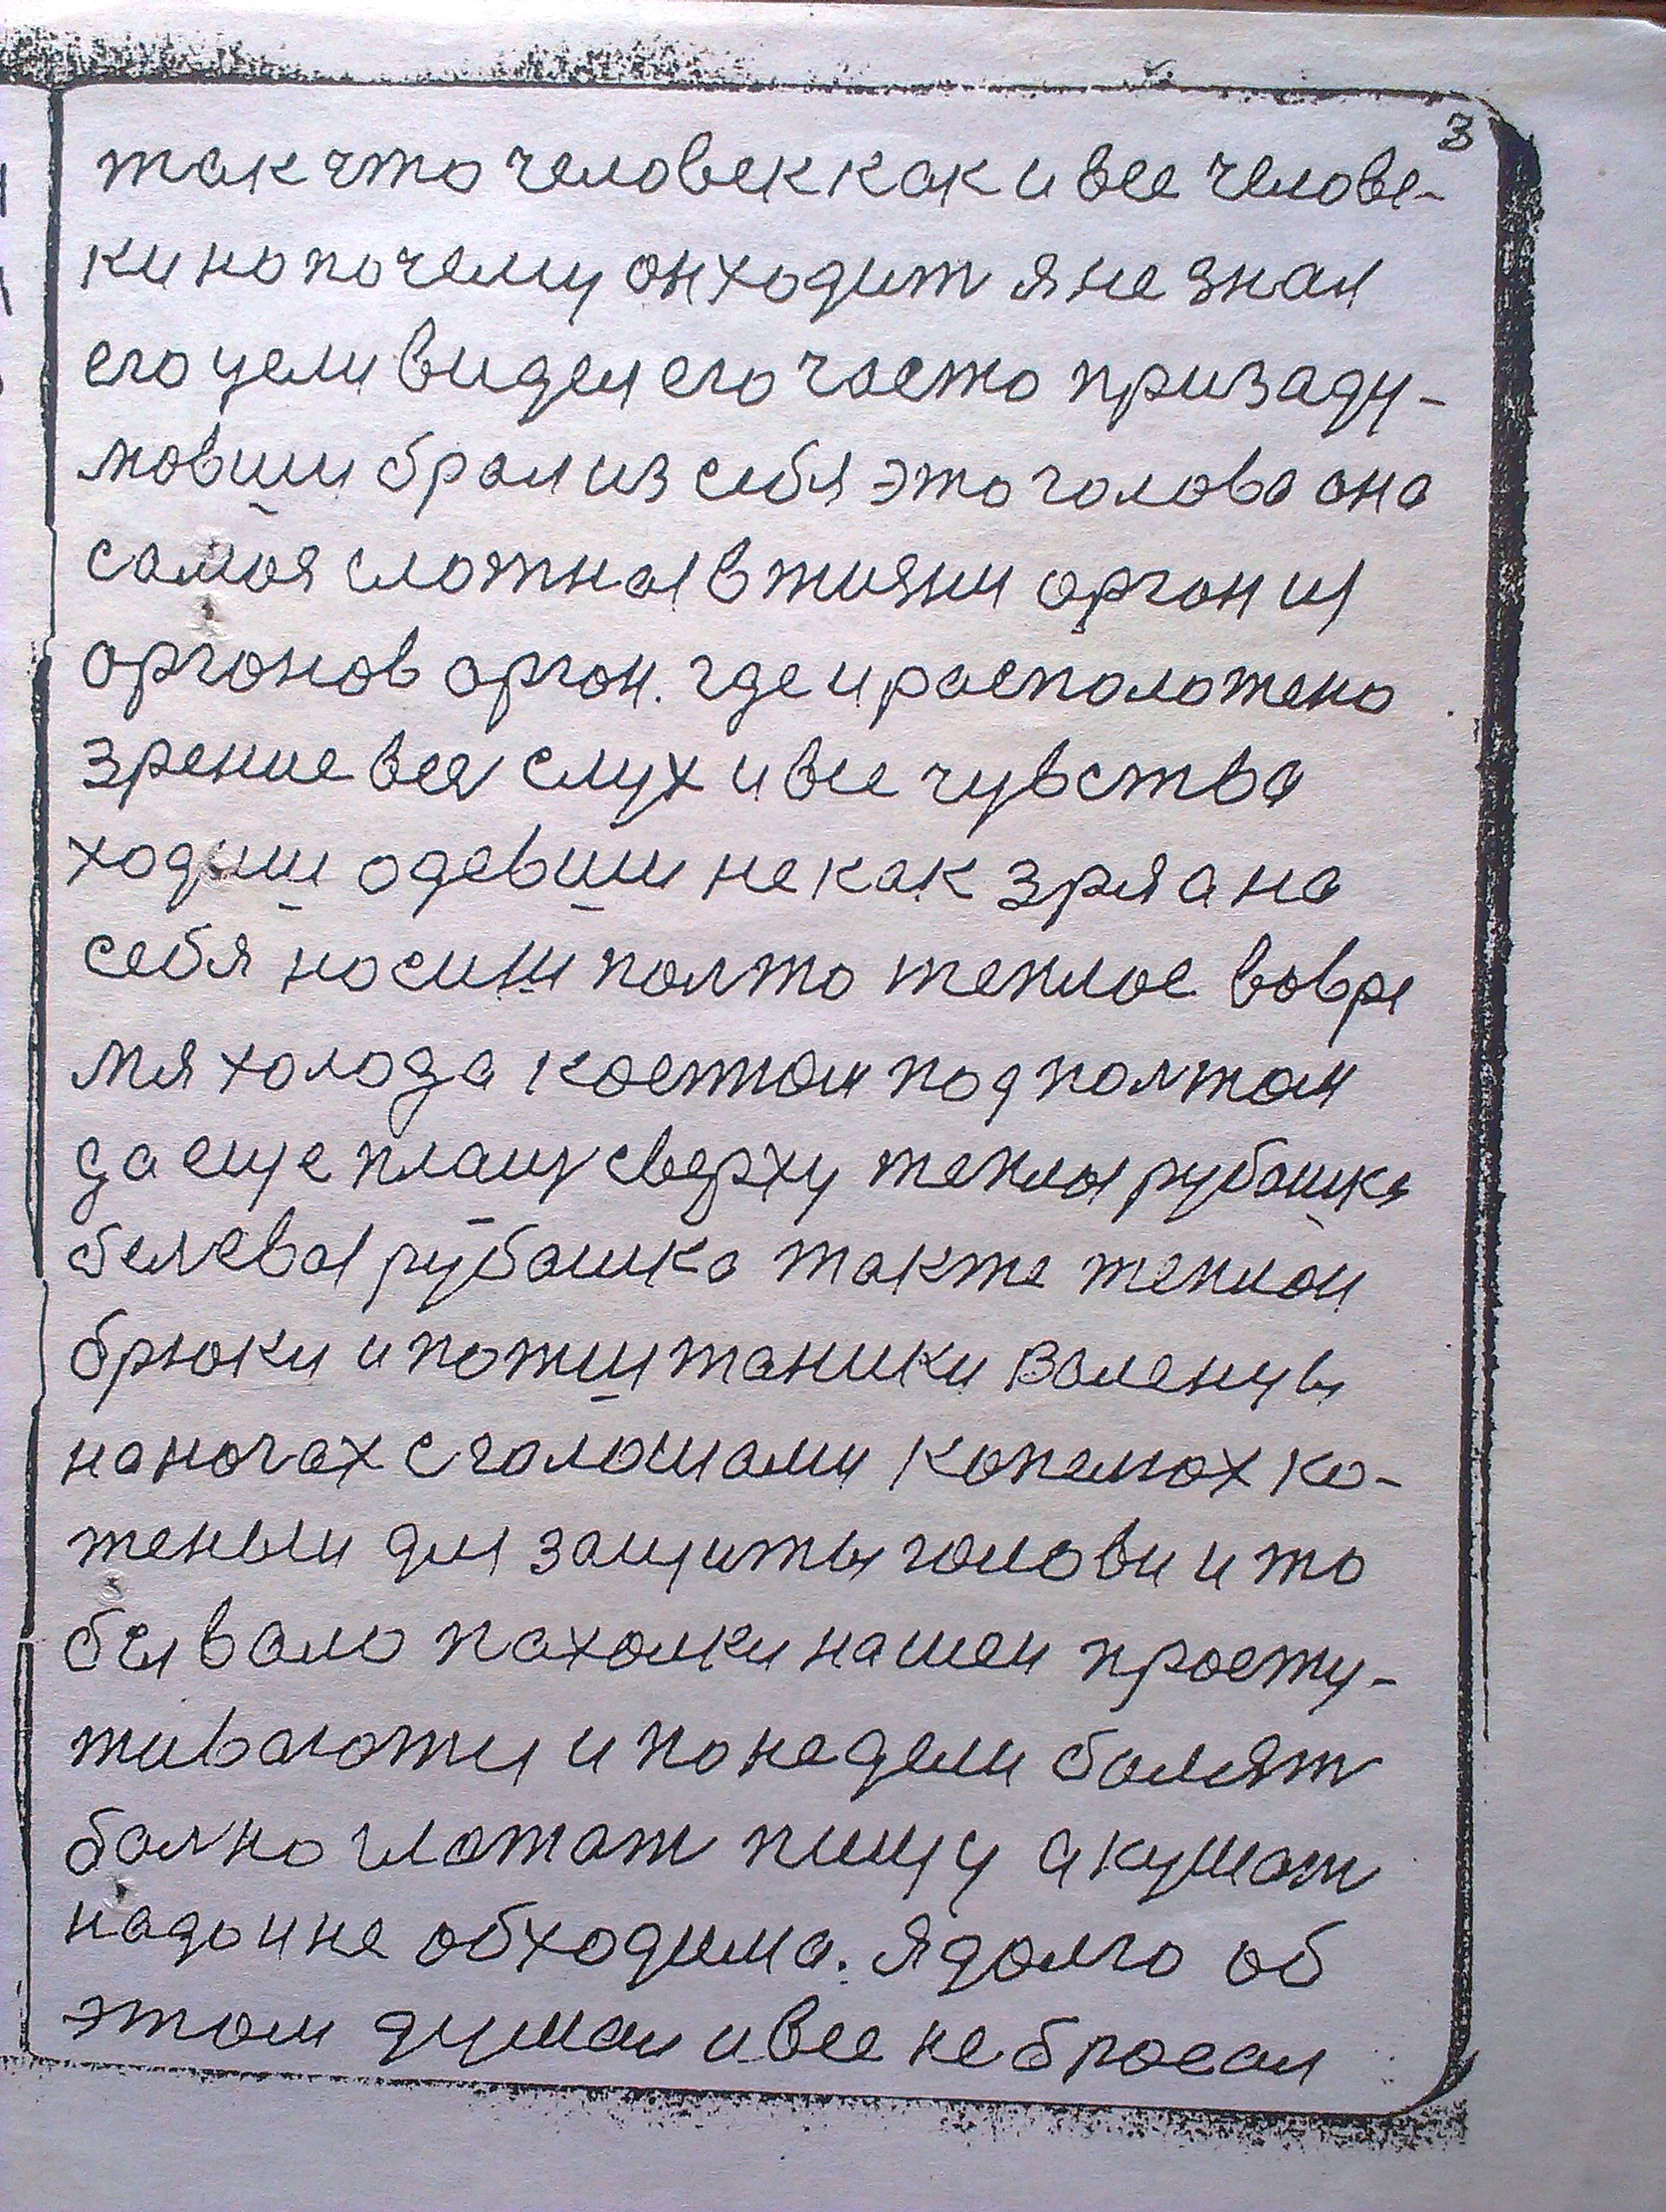 3
так что человек как и все челове-
ки но почему он ходит я не знал
его цели видел его часто призаду-
мовши брал из себя это голова она
самая сложная в жизни орган из
органов орган. где и расположено
зрение вся слух и все чувства
ходил одевши не как зря а на
себя носил полто теплое вовре
мя холода костюм под полтом
да еще плащ сверху теплоя рубашка
белевоя рубашка также теплой
брюки и потштаники валенцы
на ногах с галошами капелюх ко-
женый для защиты голови и то
бывало пахолки нашеи просту-
живаютця и по недели болят
болно глотат пищу а кушат
надо и не обходима. Я долго об
этом думал и все не бросал